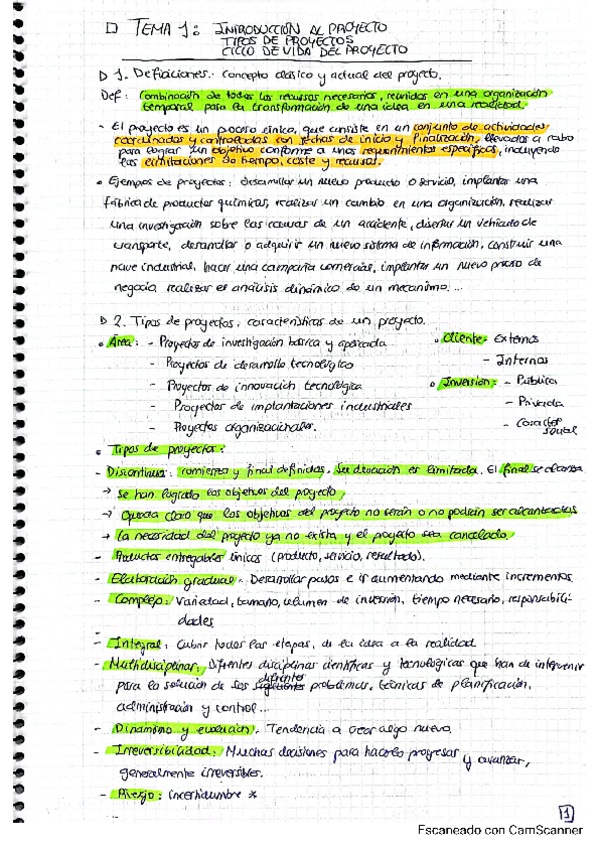 TEMA 1: INTRODUCCIÓN AL PROYECTO
TIPOS DE PROYECTOS
CICLO DE VIDA DEL PROYECTO
1. Definiciones. Concepto clásico y actual del proyecto.
Def: Combinación de todos los recursos necesarios, reunidos en una organización
temporal para la transformación de una idea en una realidad.
- El proyecto es un proceso único, que consiste en un conjunto de actividades
coordinadas y controladas con fechas de inicio y finalización, llevadas a cabo
para lograr un objetivo conforme a unos requerimientos específicos, incluyendo
las limitaciones de tiempo, coste y recursos.
• Ejemplos de proyectos: desarrollar un nuevo producto o servicio, implantar una
fábrica de productos químicos, realizar un cambio en una organización, realizar
una investigación sobre las causas de un accidente, diseñar un vehículo de
transporte, desarrollar o adquirir un nuevo sistema de información, construir una
nave industrial, hacer una campaña comercial, implantar un nuevo proceso de
negocio, realizar el análisis dinámico de un mecanismo...
2. Tipos de proyectos. Características de un proyecto.
• Área: - Proyectos de investigación básica y aplicada
- Proyectos de desarrollo tecnológico
- Proyectos de innovación tecnológica
- Proyectos de implantaciones industriales
- Proyectos organizacionales.
• Cliente: Externos
- Internos
• Inversión: - Pública
- Privada
- Carácter social
• Tipos de proyectos:
- Discontinua: comienzo y final definidos. Su duración es limitada. El final se alcanza
→ Se han logrado los objetivos del proyecto,
→ Queda claro que los objetivos del proyecto no serán o no podrán ser alcanzados
→ La necesidad del proyecto ya no exista y el proyecto sea cancelado.
- Productos entregables únicos (producto, servicio, resultado).
- Elaboración gradual. Desarrollar pasos e ir aumentando mediante incrementos.
- Complejo: Variedad, tamaño, volumen de inversión, tiempo necesario, responsabili-
dades
- Integral: Cubrir todas las etapas, de la idea a la realidad
- Multidisciplinar: Diferentes disciplinas científicas y tecnológicas que han de intervenir
para la solución de los diferentes problemas, técnicas de planificación,
administración y control...
- Dinamismo y evolución. Tendencia a crear algo nuevo.
- Irreversibilidad: Muchas decisiones para hacerlo progresar y avanzar,
generalmente irreversibles.
- Riesgo: incertidumbre *
1
Escaneado con CamScanner